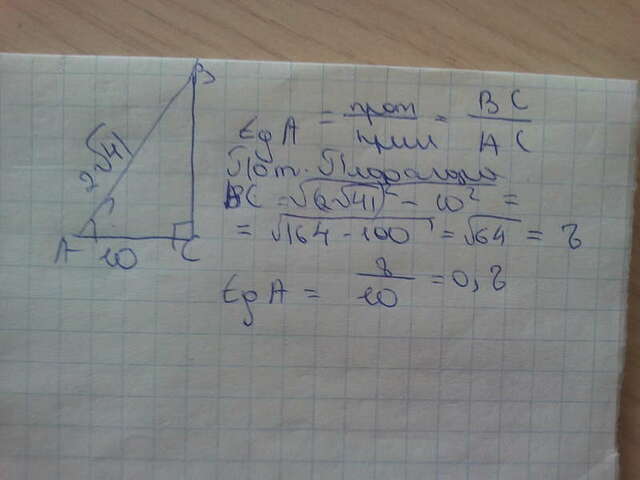 B
2√41
A 10 C
tg A = прот/прил = BC/AC
По т. Пифагора
BC = √(2√41)² - 10² =
= √164 - 100 = √64 = 8
tg A = 8/10 = 0,8